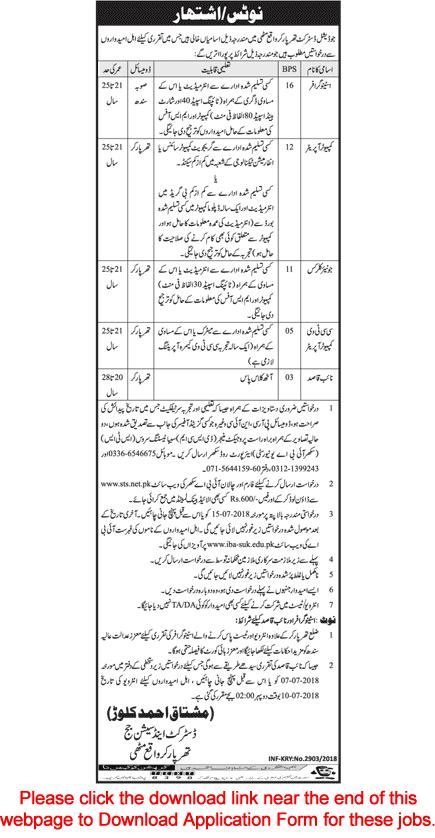 نوٹس/اشتہار
جوڈیشل ڈسٹرکٹ تھرپارکر واقع مٹھی میں مندرجہ ذیل اسامیاں خالی ہیں جس میں تقرری کیلئے اہل امیدواروں سے
درخواستیں مطلوب ہیں جو مندرجہ ذیل شرائط پر پورا اتریں گے:
اسامی کا نام BPS تعلیمی قابلیت ڈومیسائل عمر کی حد
اسٹینوگرافر 16 کسی تسلیم شدہ ادارے سے انٹرمیڈیٹ یا اس کے صوبہ 21تا25
مساوی ڈگری کے ہمراہ (ٹائپنگ اسپیڈ 40 اور شارٹ سندھ سال
ہینڈ اسپیڈ 80 الفاظ فی منٹ) کمپیوٹر اور ایم ایس آفس
کی معلومات کے حامل امیدواروں کو ترجیح دی جائیگی۔
کمپیوٹر آپریٹر 12 کسی تسلیم شدہ ادارے سے گریجویٹ کمپیوٹر سائنس یا تھرپارکر 21تا25
انفارمیشن ٹیکنالوجی کے شعبہ میں کم از کم سیکنڈ۔ سال
یا
کسی تسلیم شدہ ادارے سے کم از کم بی گریڈ میں
انٹرمیڈیٹ اور ایک سالہ ڈپلومہ کمپیوٹر میں کسی تسلیم شدہ
بورڈ سے (انٹرمیڈیٹ کی عمدہ معلومات کا حامل ہو اور
کمپیوٹر سے متعلق کوئی بھی کام کرنے کی صلاحیت کا
حامل ہو) تجربہ کے حامل کو ترجیح دی جائیگی۔
جونیئر کلرکس 11 کسی تسلیم شدہ ادارے سے انٹرمیڈیٹ یا اس کے تھرپارکر 21تا25
مساوی کے ہمراہ (ٹائپنگ اسپیڈ 30 الفاظ فی منٹ) سال
کمپیوٹر اور ایم ایس آفس کی معلومات کے حامل کو ترجیح
دی جائیگی۔
سی سی ٹی وی 05 کسی تسلیم شدہ ادارے سے میٹرک یا اس کے مساوی تھرپارکر 21تا25
کمپیوٹر آپریٹر کے ہمراہ (ایک سالہ تجربہ سی سی ٹی وی کیمرہ آپریٹنگ سال
لازمی ہے)
نائب قاصد 03 آٹھ کلاس پاس تھرپارکر 20تا28
سال
1 درخواستیں ضروری دستاویزات کے ہمراہ جیسا کہ تعلیمی اور تجربہ سرٹیفکیٹ جس میں تاریخ پیدائش کی
صراحت ہو، ڈومیسائل پی آر سی، این آئی سی وغیرہ جو کسی گزیٹڈ آفیسر کی جانب سے تصدیق شدہ ہوں، دو
حالیہ تصاویر کے ہمراہ براہ راست پروجیکٹ منیجر (ڈی ایس سی ایم) سیبا ٹیسٹنگ سروس (ایس ٹی ایس)
سکھر آئی بی اے یونیورسٹی) ایئرپورٹ روڈ سکھر ارسال کریں۔ موبائل 0336-6546675
0312-1399243، دفتر 60-5644159-071
2 درخواست ارسال کرنے کیلئے فارم اور چالان آئی بی اے سکھر کی ویب سائٹ www.sts.net.pk
سے ڈاؤن لوڈ کر کے اور فیس-/Rs.600 کسی بھی الائیڈ بینک لمیٹڈ میں جمع کرائی جائے۔
3 درخواستیں مندرجہ بالا پتہ پر مورخہ 15-07-2018 کو یا اس سے قبل پہنچ جانی چاہئیں۔ آخری تاریخ کے
بعد موصول شدہ درخواستیں زیر غور نہیں لائی جائیں گی۔ اہل امیدواروں کے ناموں کی فہرست آئی بی
اے کی ویب سائٹ www.iba-suk.edu.pk پر آویزاں کی جائیگی۔
4 پہلے سے زیر ملازمت سرکاری ملازمین محکمانہ توسط سے درخواست ارسال کریں۔
5 نامکمل یا غلط پر شدہ درخواستیں زیر غور نہیں لائیں جائیں گی۔
6 ایسے امیدوار جنہوں نے پہلے درخواست دی ہو، وہ دوبارہ درخواست دیں۔
7 انٹرویو/ٹیسٹ میں شرکت کرنے کیلئے کسی بھی امیدوار کو کوئی TA/DA نہیں دیا جائیگا۔
نوٹ: اسٹینوگرافر اور نائب قاصد کیلئے شرائط:
1 ضلع تھرپارکر کے علاوہ انٹرویو اور ٹیسٹ پاس کرنے والے اسٹینوگرافر کی تقرری کیلئے معزز عدالت عالیہ
سندھ کو مزید احکامات کیلئے لکھا جائیگا اور معزز ہائی کورٹ کا فیصلہ حتمی ہوگا۔
2 جیسا کہ نائب قاصد کی تقرری سیدھے طریقے سے ہوگی جس کیلئے درخواستیں زیر دستخطی کے دفتر میں مورخہ
07-07-2018 کو یا اس سے قبل پہنچ جانی چاہئیں، اہل امیدواروں کیلئے انٹرویو کی تاریخ
10-07-2018 بوقت دوپہر 02:00 بجے مقرر کی گئی ہے۔
(مشتاق احمد کلوڑ)
ڈسٹرکٹ اینڈ سیشن جج
تھرپارکر واقع مٹھی
INF-KRY:No.2903/2018
Please click the download link near the end of this
webpage to Download Application Form for these jobs.